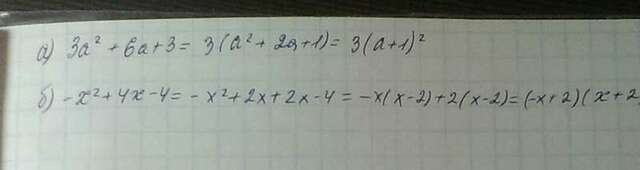 а) 3a² + 6a + 3 = 3(a² + 2a + 1) = 3(a+1)²
б) -x² + 4x - 4 = -x² + 2x + 2x - 4 = -x(x-2) + 2(x-2) = (-x+2)(x+2